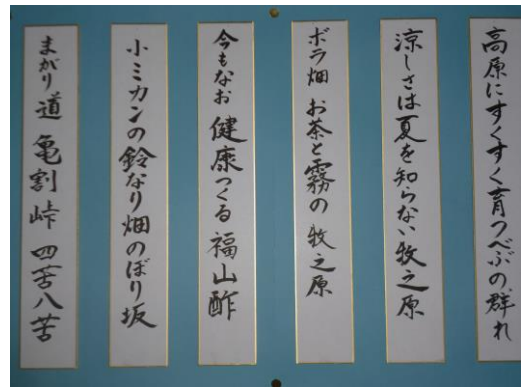 高原にすくすく育つべぶの群れ
涼しさは夏を知らない牧之原
ボラ畑 お茶と霧の牧之原
今もなお健康つくる福山酢
小ミカンの鈴なり畑のぼり坂
まがり道 亀割峠 四苦八苦